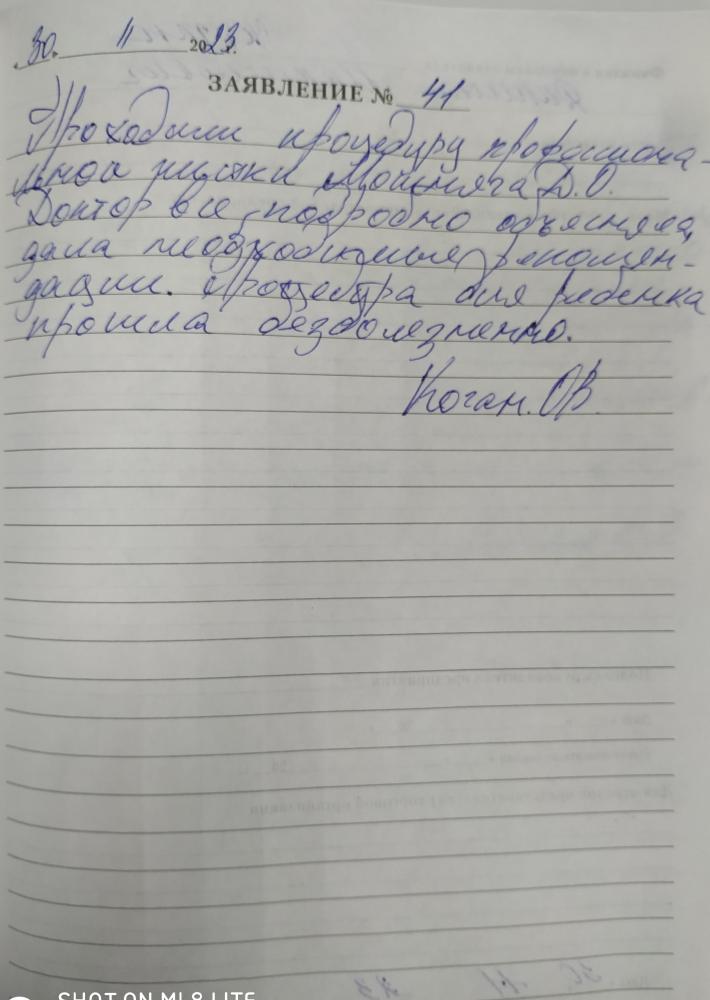 30. 11 2023г.
ЗАЯВЛЕНИЕ № 41
Проходили процедуру профессиона-
льной чистки Д.О.
Доктор все подробно объясняла,
дала необходимые рекомен-
дации. Процедура для ребенка
прошла безболезненно.
Коган. ОВ
SHOT ON MI 8 LITE